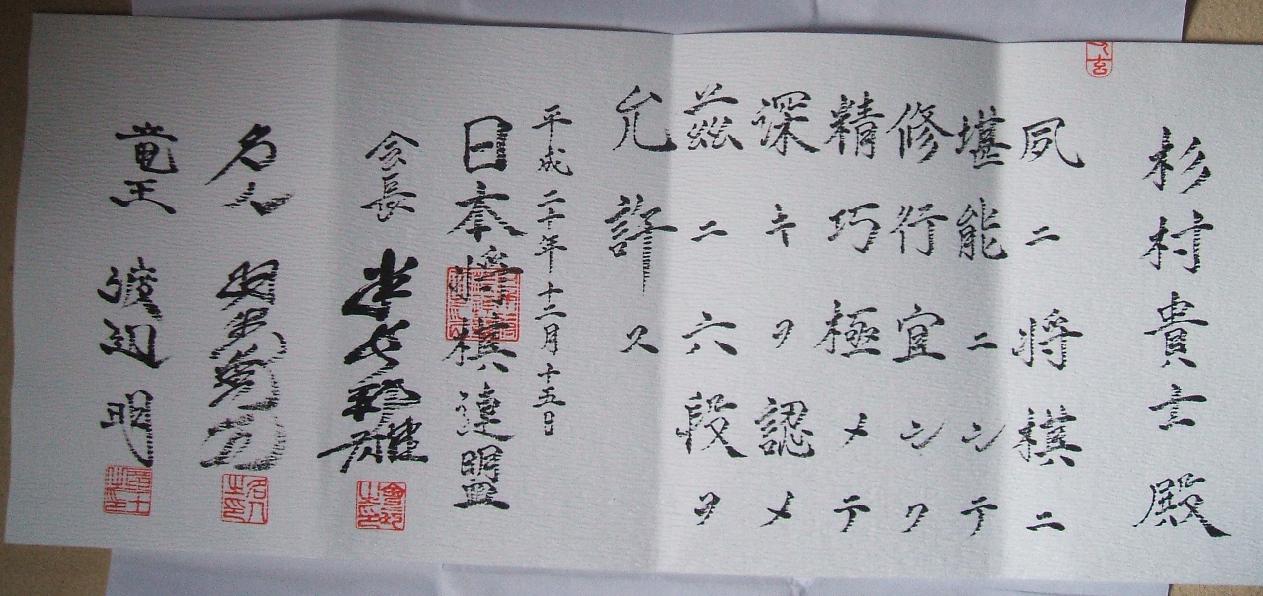 杉村貴士殿
夙ニ将棋ニ
堪能ニシテ
修行宜シク
精巧極メテ
深キヲ認メ
茲ニ六段ヲ
允許ス
平成二十年十二月十五日
日本将棋連盟
会長 米長邦雄
名人 羽生善治
竜王 渡辺明